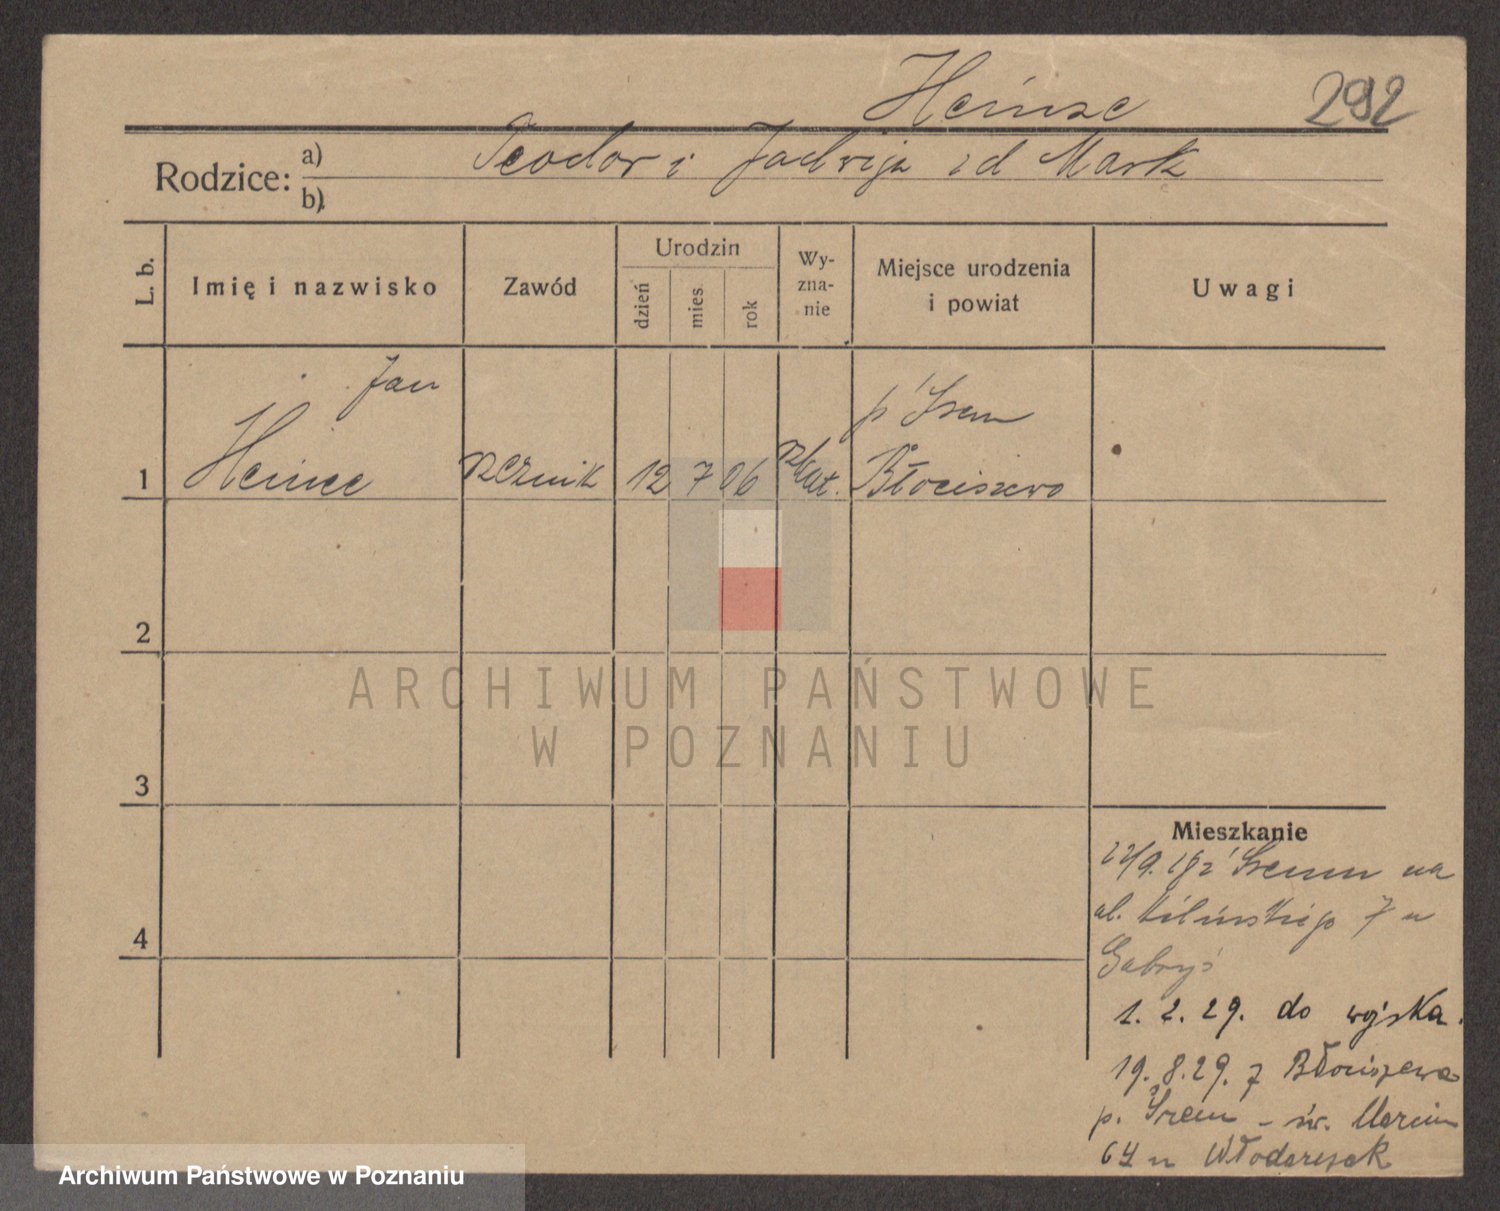 Heinze
292
Rodzice:
a) Teodor i Jadwiga zd Mark
b)
L. b.
Imię i nazwisko
Zawód
Urodzin
dzień
mies
rok
Wy-
zna-
nie
Miejsce urodzenia
i powiat
Uwagi
Jan
p Śrem
1 Heinze rzeźnik 12 7 06 rzkat. Błociszewo
2
3
4
ARCHIWUM PAŃSTWOWE
W POZNANIU
Mieszkanie
Śremu na
ul. Kilińskiego 7 u
Gabryś
1. 2. 29. do wojska.
19. 8. 29. z Błociszewa
p. Śrem - św. Marcin
64 u
Archiwum Państwowe w Poznaniu